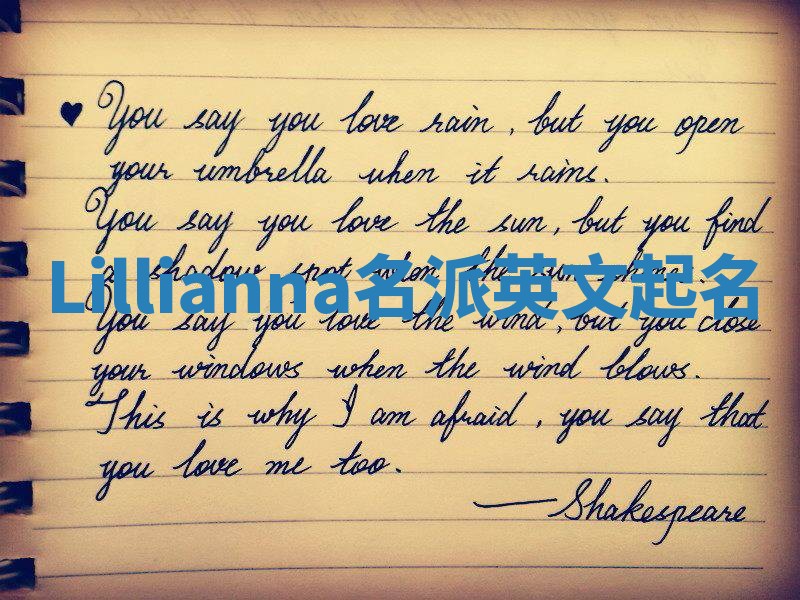 ♥ You say you love rain, but you open
your umbrella when it rains.
You say you love the sun, but you find
a shadow spot when the sun shines.
Lillianna名派英文起名
You say you love the wind, but you close
your windows when the wind blows.
This is why I am afraid, you say that
you love me too.
— Shakespeare